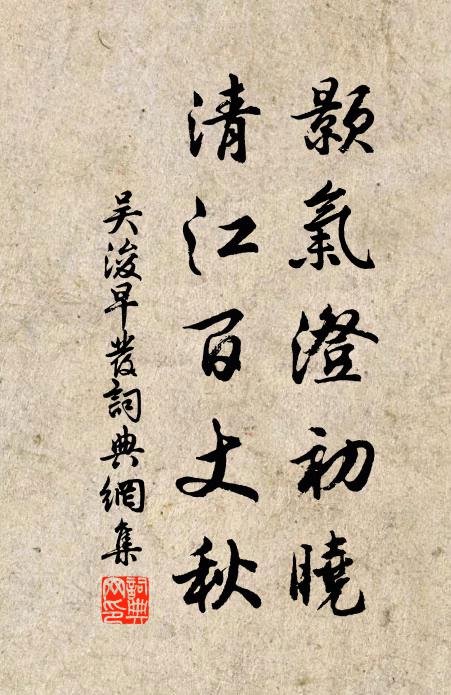 顥氣澄初曉
清江百丈秋
吴浚早發詞典網集
詞典網印